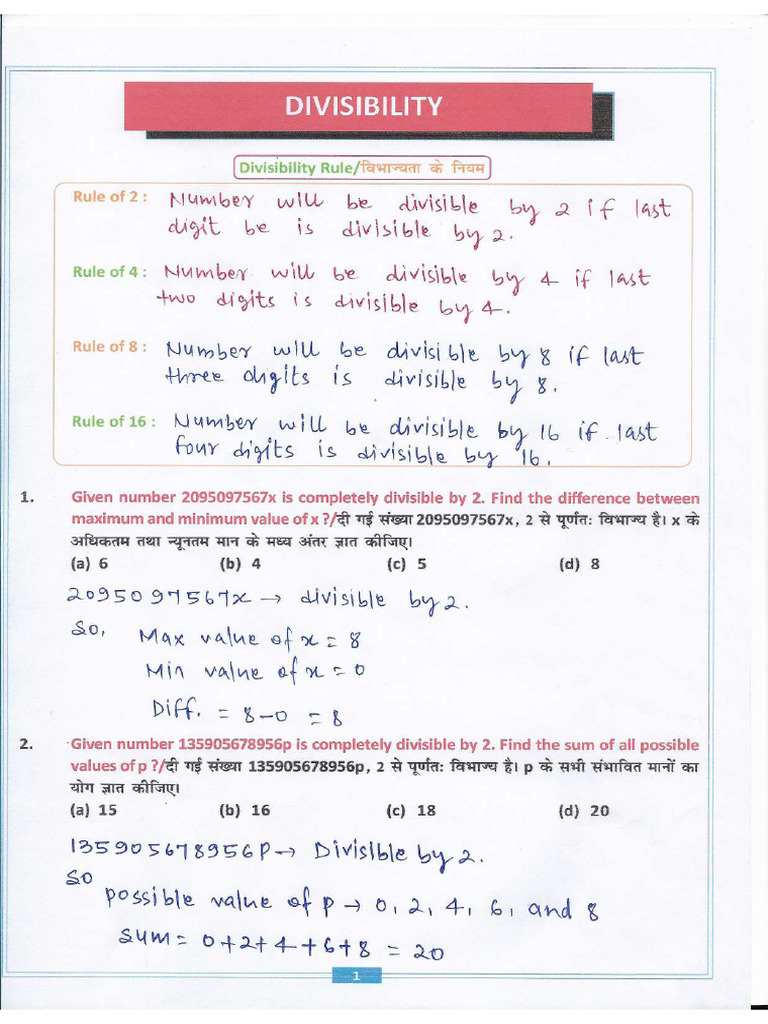 DIVISIBILITY
Divisibility Rule/विभाज्यता के नियम
Rule of 2 : Number will be divisible by 2 if last
digit be is divisible by 2.
Rule of 4 : Number will be divisible by 4 if last
two digits is divisible by 4.
Rule of 8 : Number will be divisible by 8 if last
three digits is divisible by 8.
Rule of 16 : Number will be divisible by 16 if last
four digits is divisible by 16.
1. Given number 2095097567x is completely divisible by 2. Find the difference between
maximum and minimum value of x ?/दी गई संख्या 2095097567x, 2 से पूर्णतः विभाज्य है। x के
अधिकतम तथा न्यूनतम मान के मध्य अंतर ज्ञात कीजिए।
(a) 6 (b) 4 (c) 5 (d) 8
2095097567x → divisible by 2.
So, Max value of x = 8
Min value of x = 0
Diff. = 8-0 = 8
2. Given number 135905678956p is completely divisible by 2. Find the sum of all possible
values of p ?/दी गई संख्या 135905678956p, 2 से पूर्णतः विभाज्य है। p के सभी संभावित मानों का
योग ज्ञात कीजिए।
(a) 15 (b) 16 (c) 18 (d) 20
135905678956P → Divisible by 2.
So
possible value of P → 0, 2, 4, 6, and 8
sum = 0+2+4+6+8 = 20
1